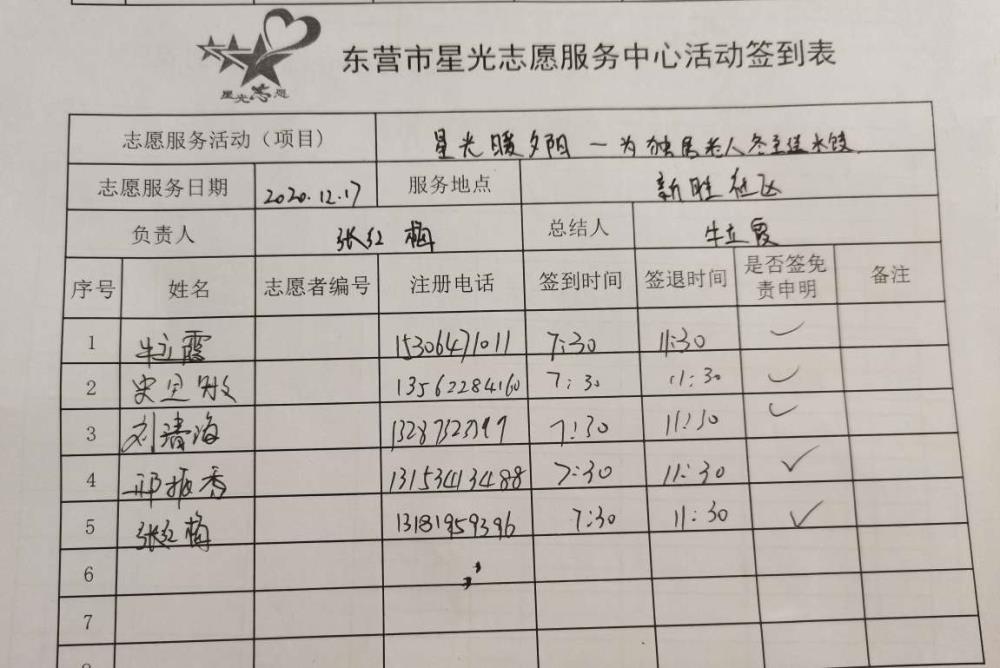 星光志愿
东营市星光志愿服务中心活动签到表
志愿服务活动（项目） 星光暖夕阳－为独居老人冬至送水饺
志愿服务日期 2020.12.17 服务地点 新胜社区
负责人 张红梅 总结人 牛立霞
序号 姓名 志愿者编号 注册电话 签到时间 签退时间 是否签免责申明 备注
1 牛立霞 15306471011 7:30 11:30 ✓
2 13562284160 7:30 11:30 ✓
3 刘清海 7:30 11:30 ✓
4 祁振秀 13153413488 7:30 11:30 ✓
5 张红梅 13181959396 7:30 11:30 ✓
6
7